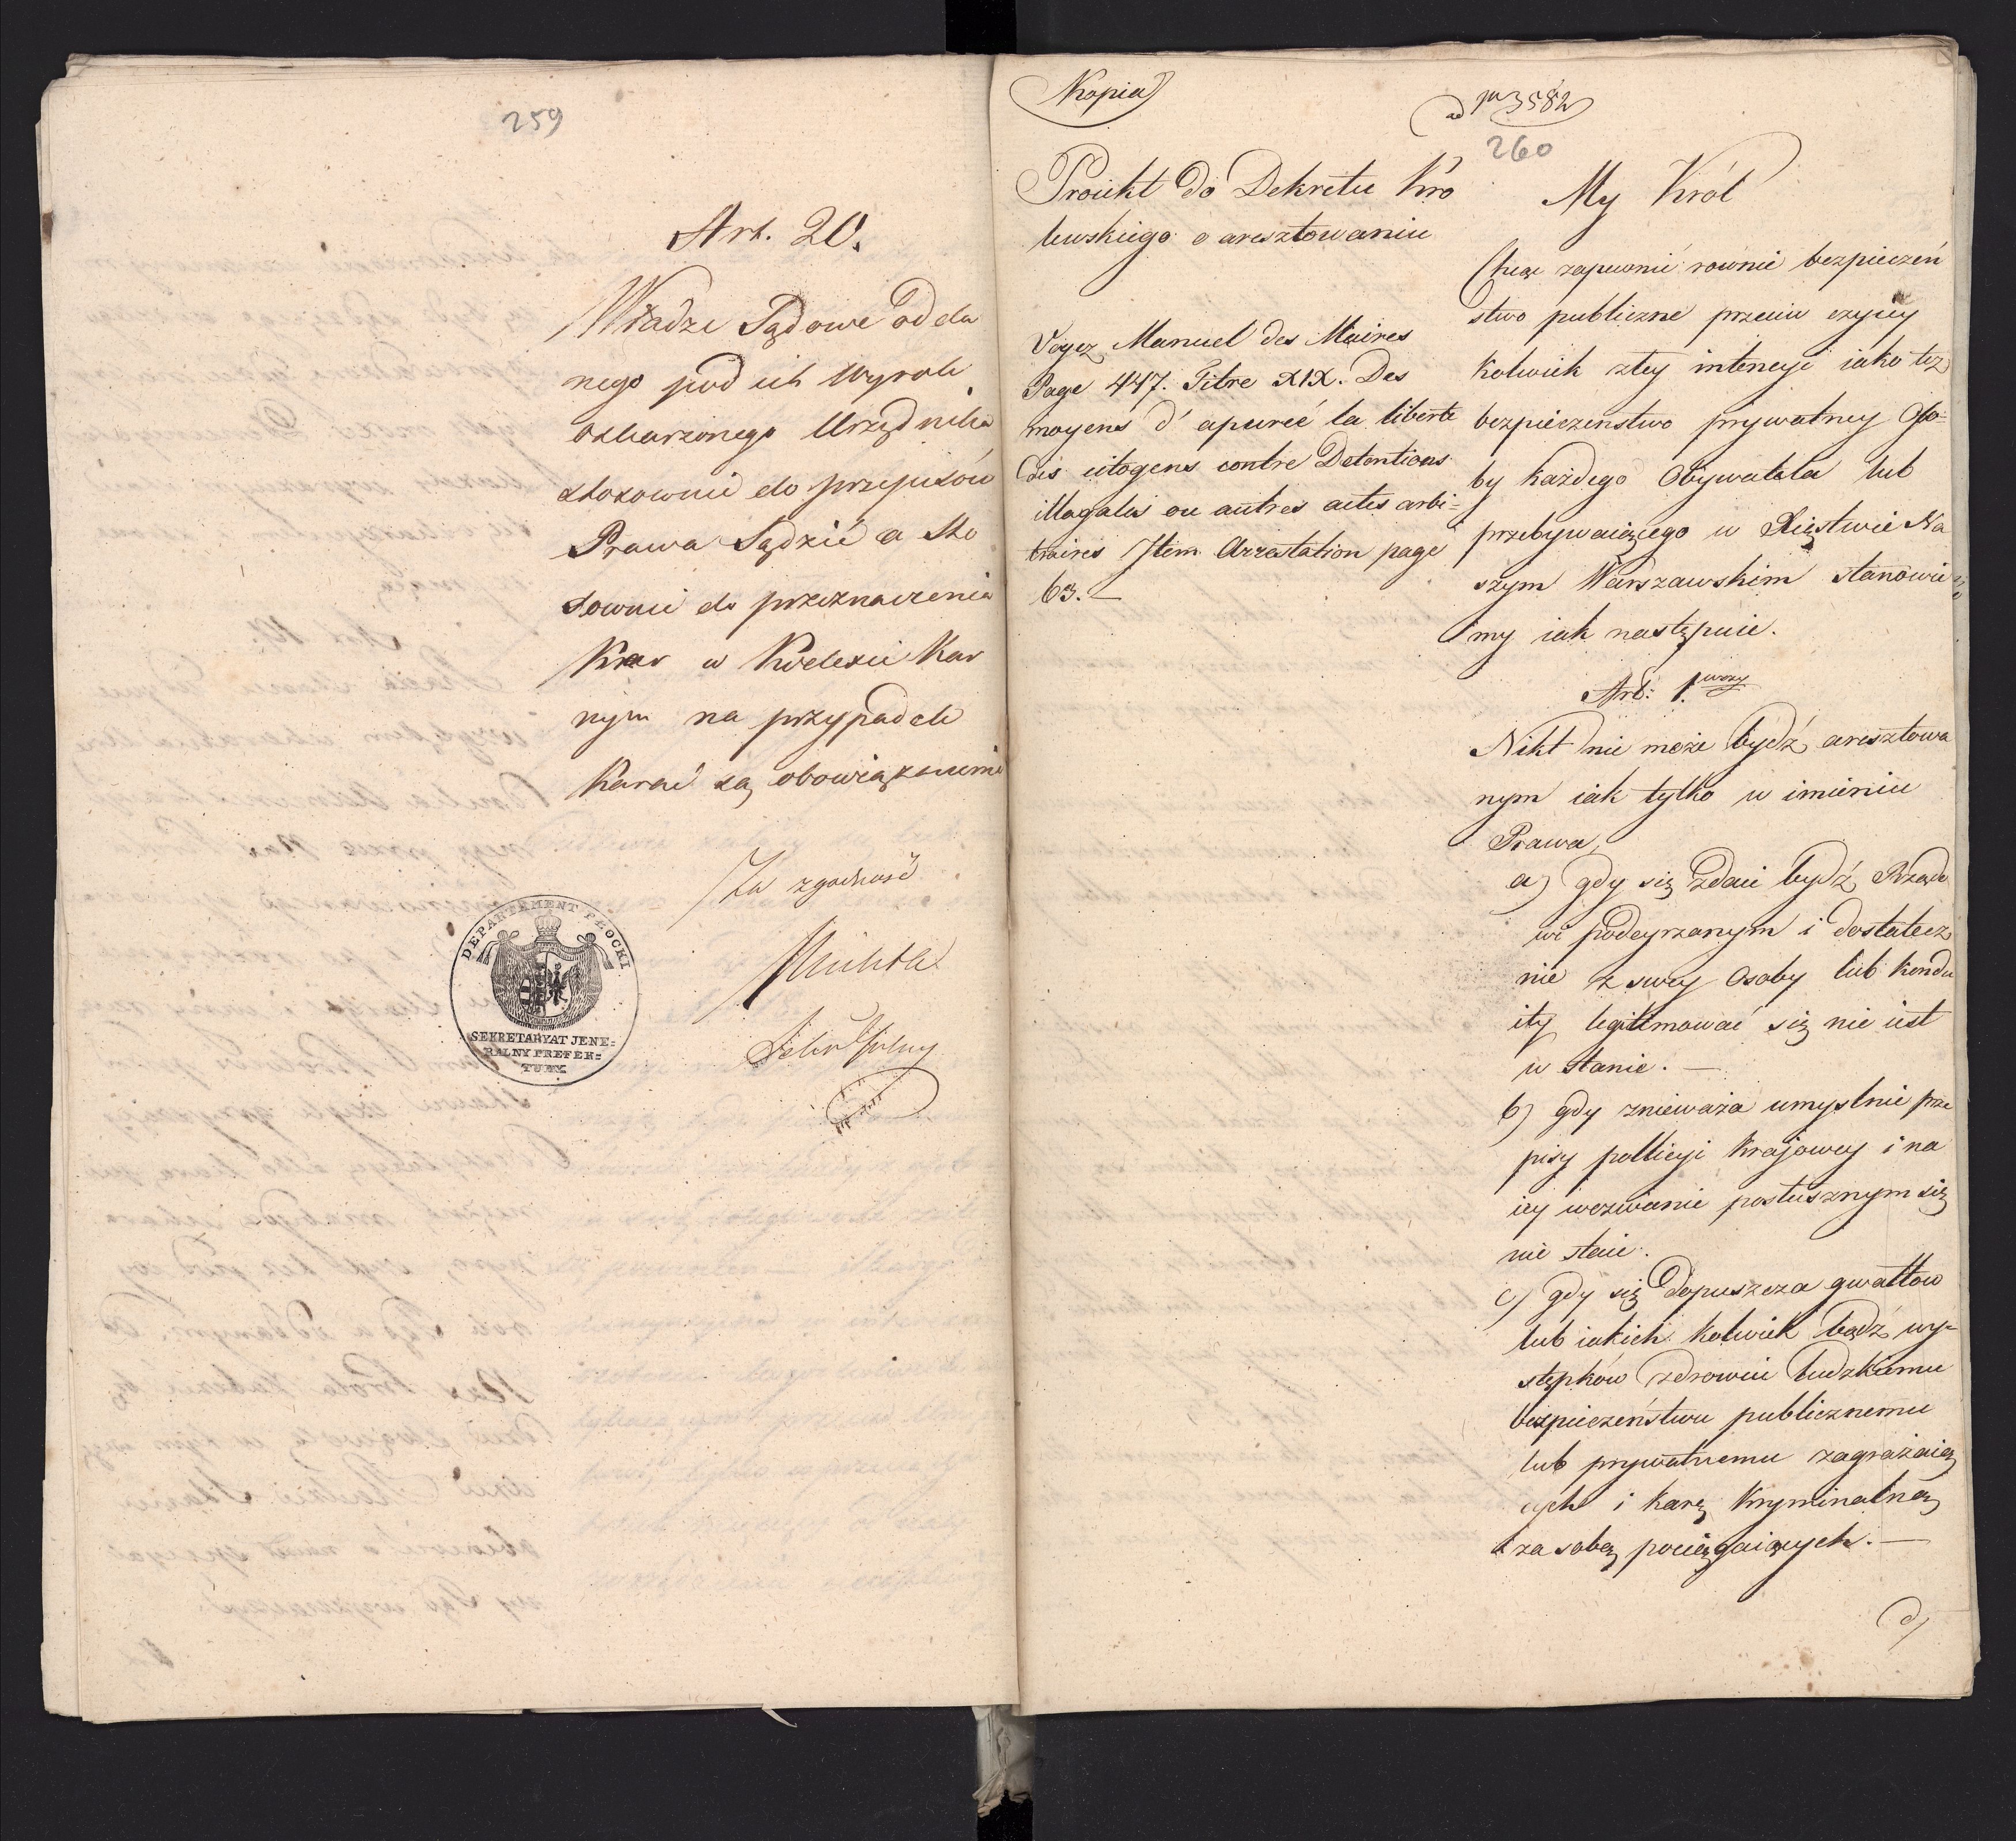 259
Art. 20.
Władze Sądowe odda
nego pod ich Wyrok
oskarzonego Urzędnika
stosownie do przepisów
Prawa Sądzić a Sto
sownie do przeznaczenia
Kar w Kodexie Kar
nym na przypadek
Karać są obowiązanemi
Za zgodność
DEPARTEMENT PŁOCKI
SEKRETARYAT JENE=
RALNY PREFEK=
TURY
Kopia
ad nr 3582
260
Proiekt do Dekretu Kro
lewskiego o aresztowaniu
Voyez Manuel des Maires
Page 447. Titre XIX. Des
moyens d' apureé la liberte
des citogens contre Detentions
illagales ou autres actes arbi=
traires Item Arrestation page
63. —
My Król
Chcąc zapewnić rownie bezpieczeń
stwo publiczne przeciw czyiey
kolwiek złey intencyi iako też
bezpieczenstwo prywatney Oso=
by każdego Obywatela lub
przebywaiącego w Xięstwie Na
szym Warszawskim stanowie
my iak następuie.
Art: 1.wszy
Nikt nie może bydź aresztowa
nym iak tylko w imieniu
Prawa,
a) gdy się zdaie bydź Rządo
wi podeyrzanym i dostatecz
nie z swey Osoby lub Kondu
ity legitimować się nie iest
w stanie. —
b) gdy znieważa umyslnie prze
pisy pollicyi Krajowey i na
iey wezwanie posłusznym się
nie staie.
c) gdy się dopuszcza gwałtow
lub iakich kolwiek bądź wy=
stępków zdrowiu ludzkiemu
bezpieczeństwu publicznemu
lub prywatnemu zagrażaią
cych i karę kryminalną
za sobą pociągaiących. —
d)